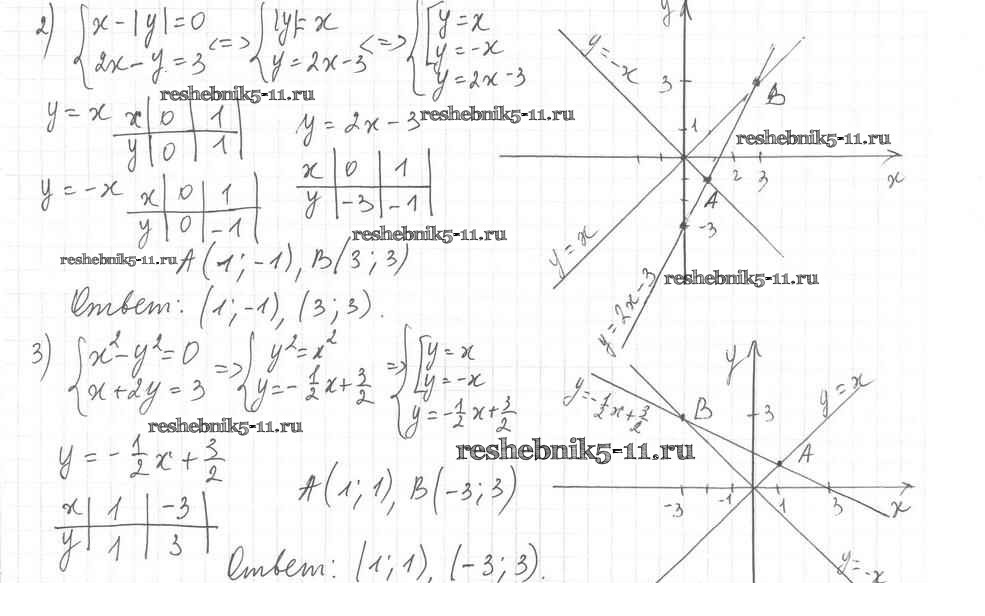 2) { x - |y| = 0 <=> { |y| = x <=> { [ y = x
2x - y = 3 y = 2x - 3 y = -x
y = 2x - 3
reshebnik5-11.ru
y = x x 0 1
y 0 1
y = 2x - 3
reshebnik5-11.ru
x 0 1
y -3 -1
y = -x x 0 1
y 0 -1
reshebnik5-11.ru
reshebnik5-11.ru A(1; -1), B(3; 3)
Ответ: (1; -1), (3; 3).
y
y = -x
3
B
1
reshebnik5-11.ru
2 3
x
A
-3
y = x
reshebnik5-11.ru
y = 2x - 3
3) { x² - y² = 0 => { y² = x² => { [ y = x
x + 2y = 3 y = -1/2 x + 3/2 y = -x
y = -1/2 x + 3/2
reshebnik5-11.ru
y = -1/2 x + 3/2
reshebnik5-11.ru
x 1 -3
y 1 3
A(1; 1), B(-3; 3)
Ответ: (1; 1), (-3; 3).
y
y = -1/2 x + 3/2
B
3
y = x
A
-3 -1 1 3
x
y = -x